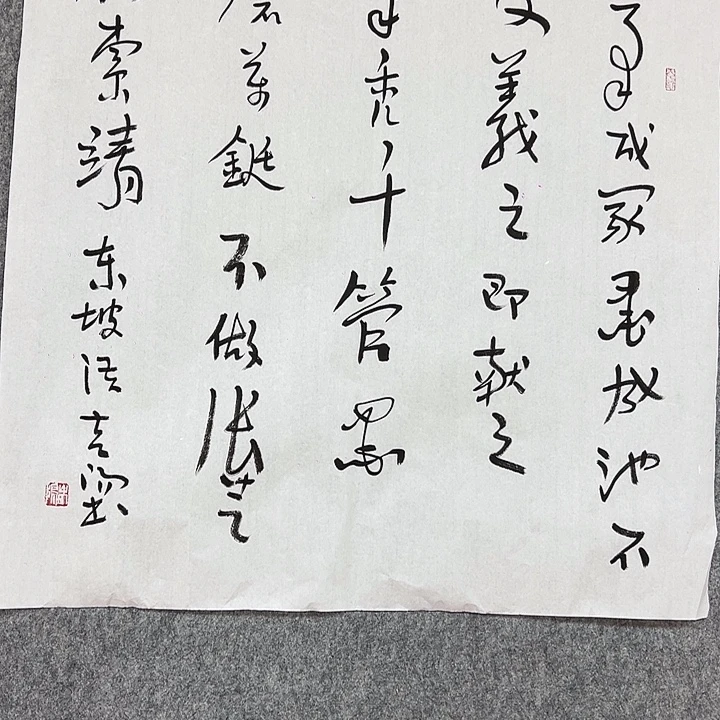 笔成冢墨成池不
及羲之即献之
笔秃千管墨
磨万鋌不做张芝
索靖东坡语